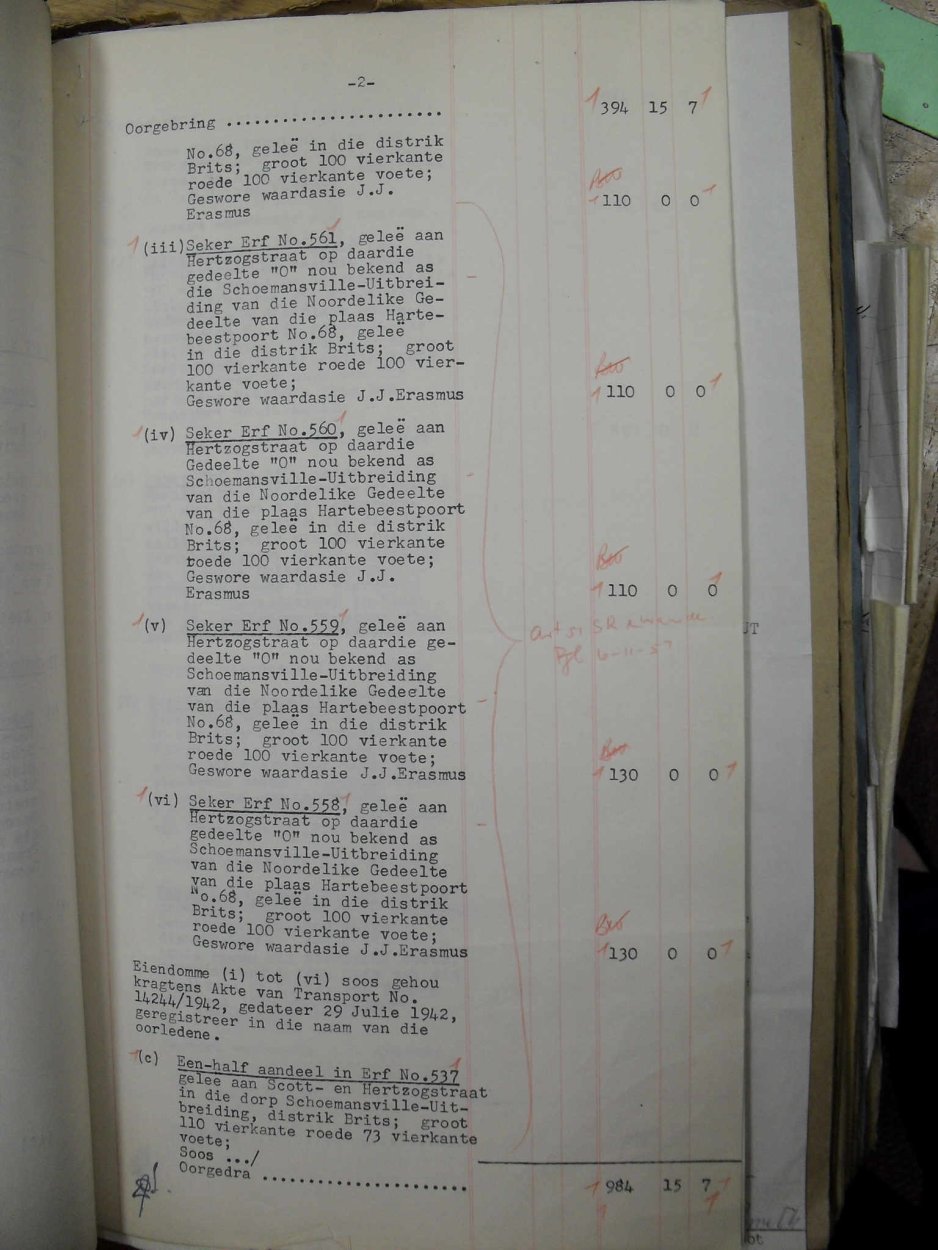 -2-
Oorgebring ........................ 394 15 7
No.68, geleë in die distrik
Brits; groot 100 vierkante
roede 100 vierkante voete;
Geswore waardasie J.J.
Erasmus 110 0 0
(iii) Seker Erf No.561, geleë aan
Hertzogstraat op daardie
gedeelte "O" nou bekend as
die Schoemansville-Uitbrei-
ding van die Noordelike Ge-
deelte van die plaas Harte-
beestpoort No.68, geleë
in die distrik Brits; groot
100 vierkante roede 100 vier-
kante voete;
Geswore waardasie J.J.Erasmus 110 0 0
(iv) Seker Erf No.560, geleë aan
Hertzogstraat op daardie
Gedeelte "O" nou bekend as
Schoemansville-Uitbreiding
van die Noordelike Gedeelte
van die plaas Hartebeestpoort
No.68, geleë in die distrik
Brits; groot 100 vierkante
roede 100 vierkante voete;
Geswore waardasie J.J.
Erasmus 110 0 0
(v) Seker Erf No.559, geleë aan
Hertzogstraat op daardie ge-
deelte "O" nou bekend as
Schoemansville-Uitbreiding
van die Noordelike Gedeelte
van die plaas Hartebeestpoort
No.68, geleë in die distrik
Brits; groot 100 vierkante
roede 100 vierkante voete;
Geswore waardasie J.J.Erasmus 130 0 0
(vi) Seker Erf No.558, geleë aan
Hertzogstraat op daardie
gedeelte "O" nou bekend as
Schoemansville-Uitbreiding
van die Noordelike Gedeelte
van die plaas Hartebeestpoort
No.68, geleë in die distrik
Brits; groot 100 vierkante
roede 100 vierkante voete;
Geswore waardasie J.J.Erasmus 130 0 0
Eiendomme (i) tot (vi) soos gehou
kragtens Akte van Transport No.
14244/1942, gedateer 29 Julie 1942,
geregistreer in die naam van die
oorledene.
(c) Een-half aandeel in Erf No.537
gelee aan Scott- en Hertzogstraat
in die dorp Schoemansville-Uit-
breiding, distrik Brits; groot
110 vierkante roede 73 vierkante
voete;
Soos .../
Oorgedra ...................... 984 15 7